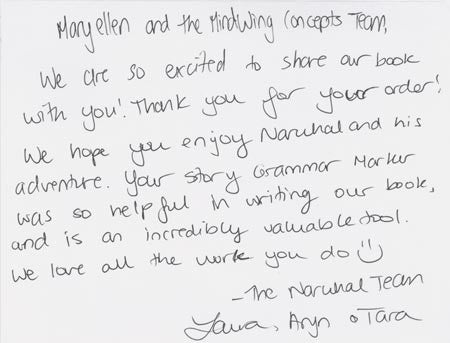 Maryellen and the MindWing Concepts Team,
We are so excited to share our book
with you! Thank you for your order!
We hope you enjoy Naruhal and his
adventure. Your Story Grammar Marker
was so helpful in writing our book,
and is an incredibly valuable tool.
We love all the work you do
-The Naruhal Team
Laura, Aryn & Tara